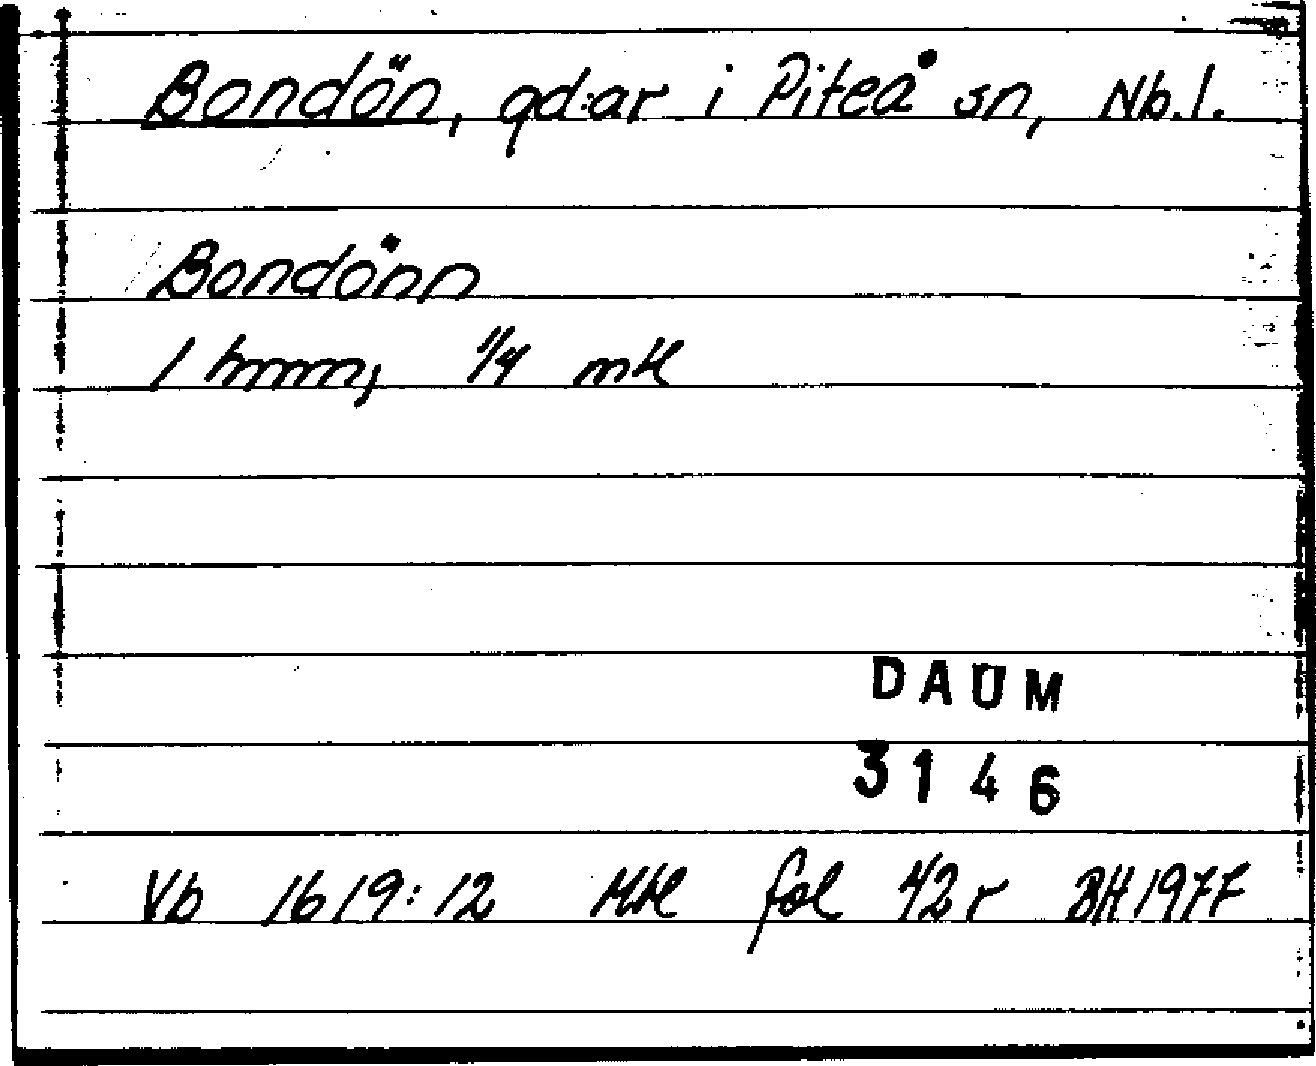 Bondön, gd:ar i Piteå sn, Nb.l.
Bondönn
1 hmm, 1/4 mkl
DAUM
3146
Vb 1619:12 Mkl fol 42r BH 1977